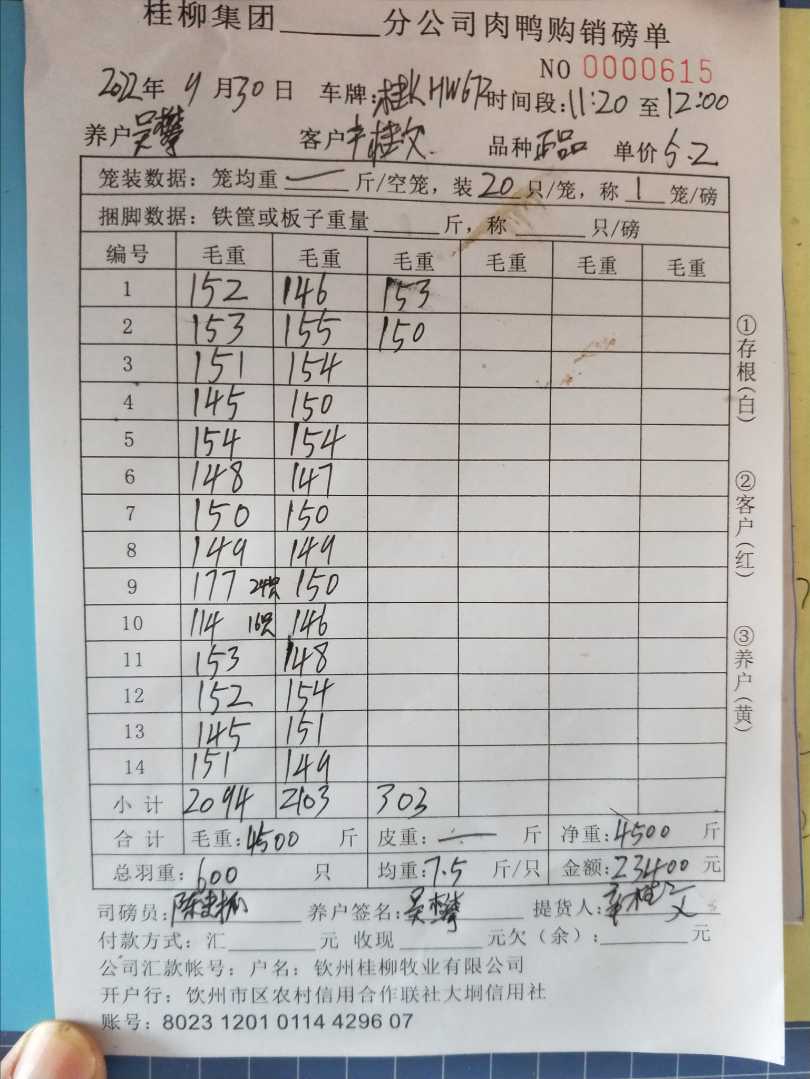 桂柳集团______分公司肉鸭购销磅单
NO 0000615
2022年 9月30日 车牌:桂KHW672 时间段:11:20 至12:00
养户吴攀 客户辛桂文 品种正品 单价5.2
笼装数据:笼均重 — 斤/空笼,装 20 只/笼,称 1 笼/磅
捆脚数据:铁筐或板子重量______斤,称______只/磅
编号 毛重 毛重 毛重 毛重 毛重 毛重
1 152 146 153
2 153 155 150
3 151 154
4 145 150
5 154 154
6 148 147
7 150 150
8 149 149
9 177 24只 150
10 114 16只 146
11 153 148
12 152 154
13 145 151
14 151 149
小计 2094 2103 303
合计 毛重:4500 斤 皮重:— 斤 净重:4500 斤
总羽重:600 只 均重:7.5 斤/只 金额:23400 元
司磅员:陈 养户签名:吴攀 提货人:辛桂文
付款方式:汇______元 收现______元欠(余):______元
公司汇款帐号:户名:钦州桂柳牧业有限公司
开户行:饮州市区农村信用合作联社大垌信用社
账号:8023 1201 0114 4296 07
①存根(白)
②客户(红)
③养户(黄)